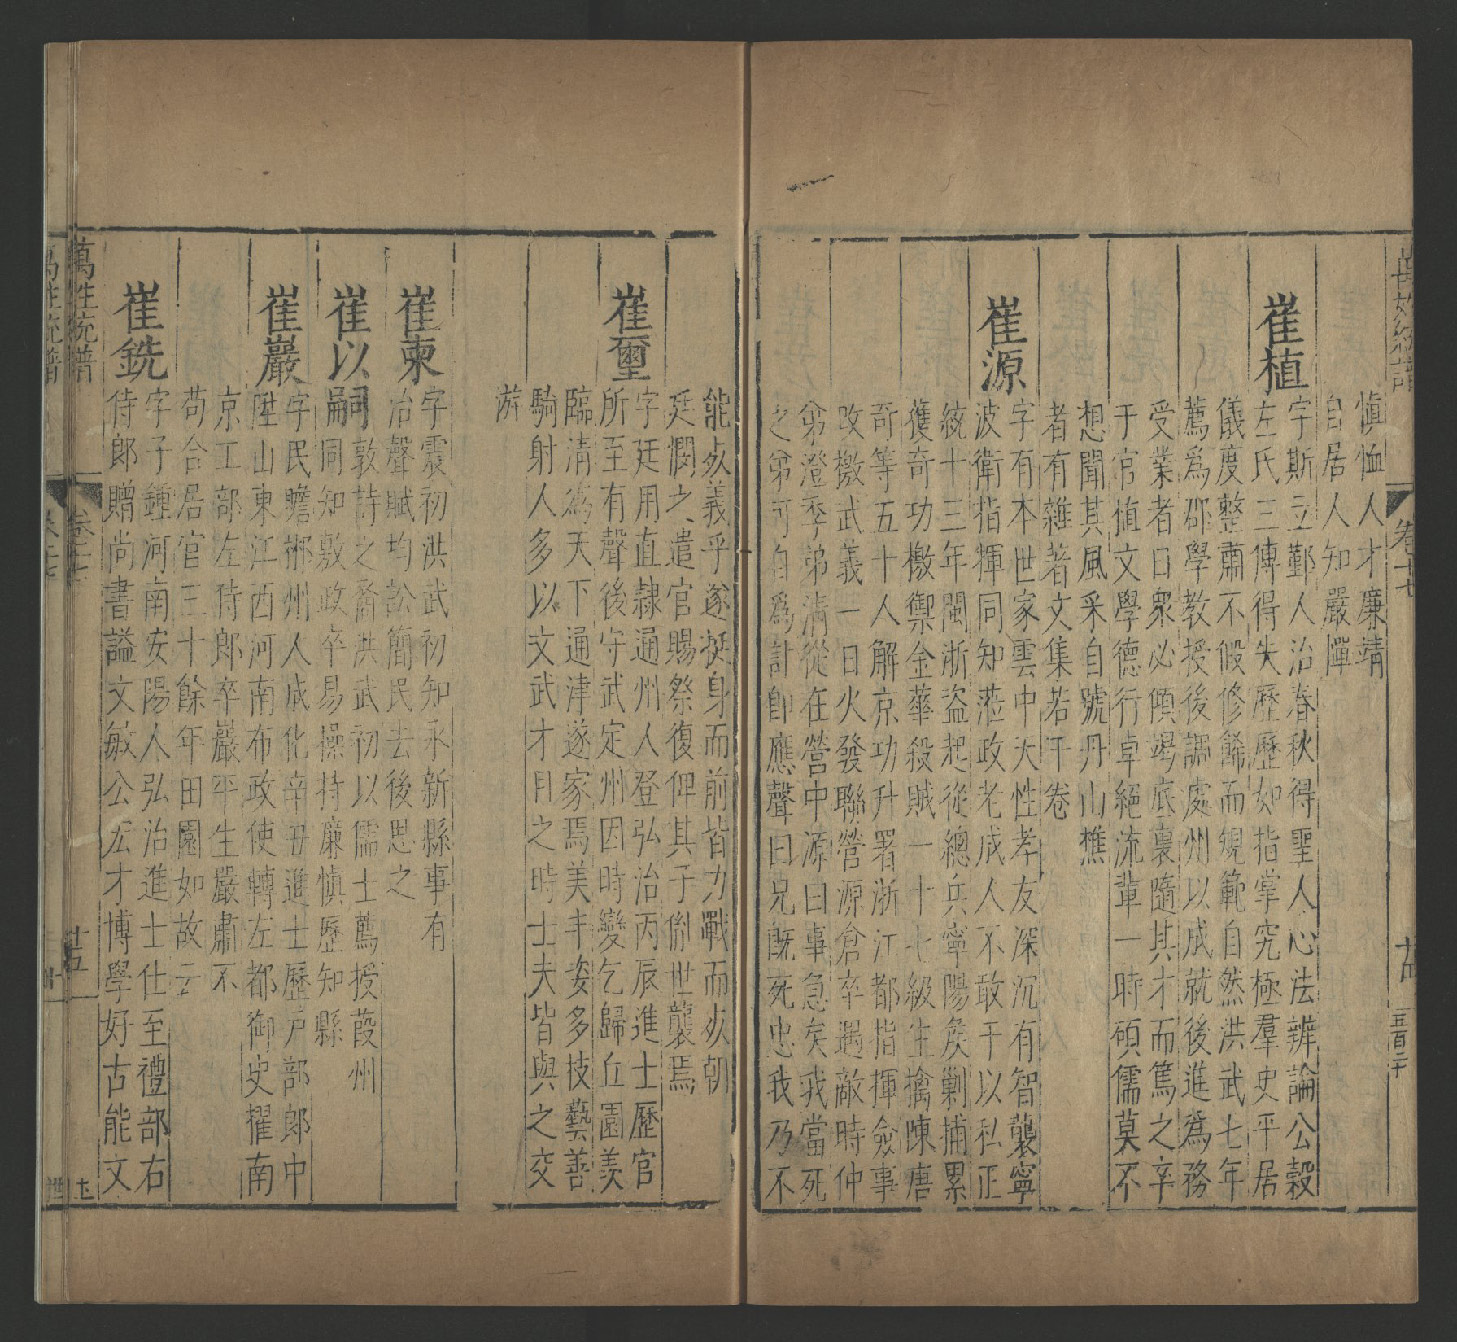 萬姓統譜 卷十七
慎恤人才廉靖
自居人知嚴憚
崔植
字斯立鄞人治春秋得聖人心法辨論公穀
左氏三傳得失歷歷如指掌究極羣史平居
儀度整肅不假修飾而規範自然洪武七年
薦爲郡學教授後調處州以成就後進爲務
受業者日衆必傾竭底裏隨其才而篤之卒
于官值文學德行卓絕流輩一時碩儒莫不
想聞其風采自號丹山樵
者有雜著文集若干卷
崔源
字有本世家雲中天性孝友深沉有智襲寧
波衛指揮同知蒞政老成人不敢干以私正
統十三年閩浙盜起從總兵寧陽侯剿捕累
獲奇功檄禦金華殺賊一十七級生擒陳唐
奇等五十人解京功升署浙江都指揮僉事
改檄武義一日火發聯營源倉卒遇敵時仲
弟澄季弟清從在營中源曰事急矣我當死
之弟可自爲計卽應聲曰兄旣死忠我乃不
能死義乎遂挺身而前皆力戰而死朝
廷憫之遣官賜祭復俾其子侃世襲焉
崔璽
字廷用直隷通州人登弘治丙辰進士歷官
所至有聲後守武定州因時變乞歸丘園美
臨清為天下通津遂家焉美丰姿多技藝善
騎射人多以文武才目之時士夫皆與之交
游
崔東
字震初洪武初知永新縣事有
冶聲賦均訟簡民去後思之
崔以嗣
敦詩之裔洪武初以儒士薦授葭州
同知敷政卒易操持廉慎歷知縣
崔巖
字民瞻郴州人成化辛丑進士歷戶部郎中
陞山東江西河南布政使轉左都御史擢南
京工部左侍郎卒嚴平生嚴肅不
苟合居官三十餘年田園如故云
崔銑
字子鍾河南安陽人弘治進士仕至禮部右
侍郎贈尚書謚文敏公宏才博學好古能文
萬姓統譜 卷十七